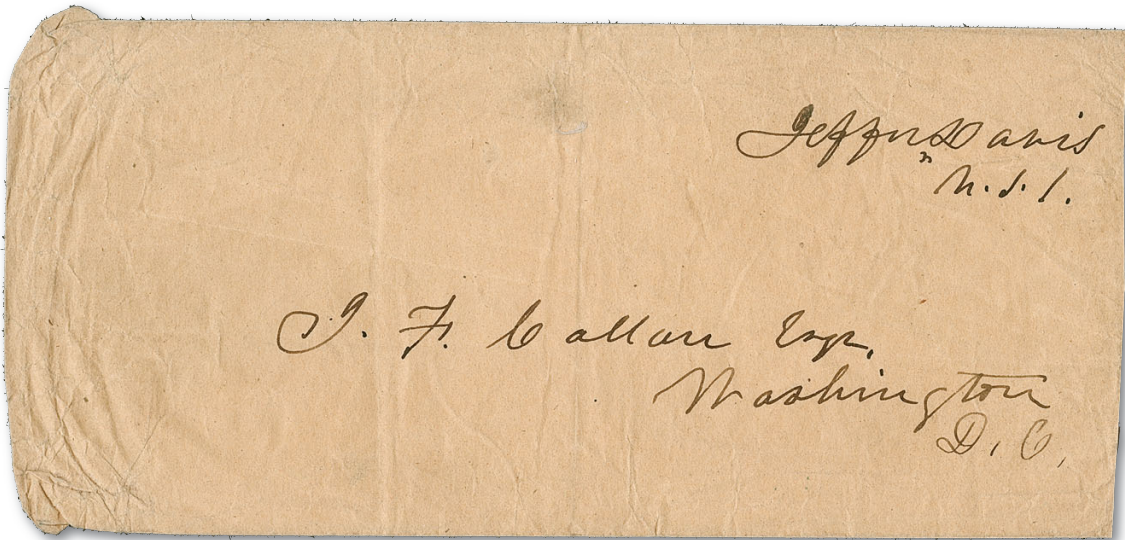 Jeffn Davis
U.S.S.
J. F. Callan Esqr.
Washington
D. C.